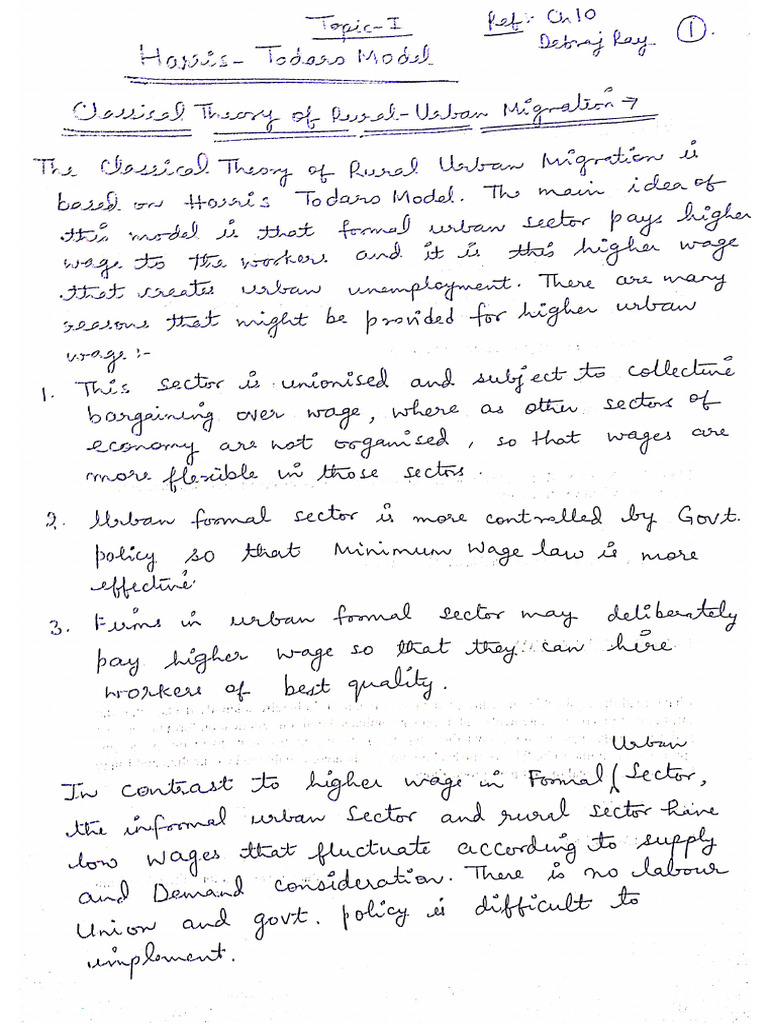 Topic-I
Ref:- Ch 10
Debraj Ray
1.
Harris-Todaro Model
Classical Theory of Rural-Urban Migration →
The Classical Theory of Rural Urban Migration is
based on Harris Todaro Model. The main idea of
this model is that formal urban sector pays higher
wage to the workers and it is this higher wage
that creates urban unemployment. There are many
reasons that might be provided for higher urban
wage :-
1. This sector is unionised and subject to collective
bargaining over wage, where as other sectors of
economy are not organised, so that wages are
more flexible in those sectors.
2. Urban formal sector is more controlled by Govt.
policy so that Minimum Wage law is more
effective
3. Firms in urban formal sector may deliberately
pay higher wage so that they can hire
workers of best quality.
In contrast to higher wage in Formal Urban Sector,
the informal urban Sector and rural sector have
low wages that fluctuate according to supply
and Demand consideration. There is no labour
Union and govt. policy is difficult to
implement.